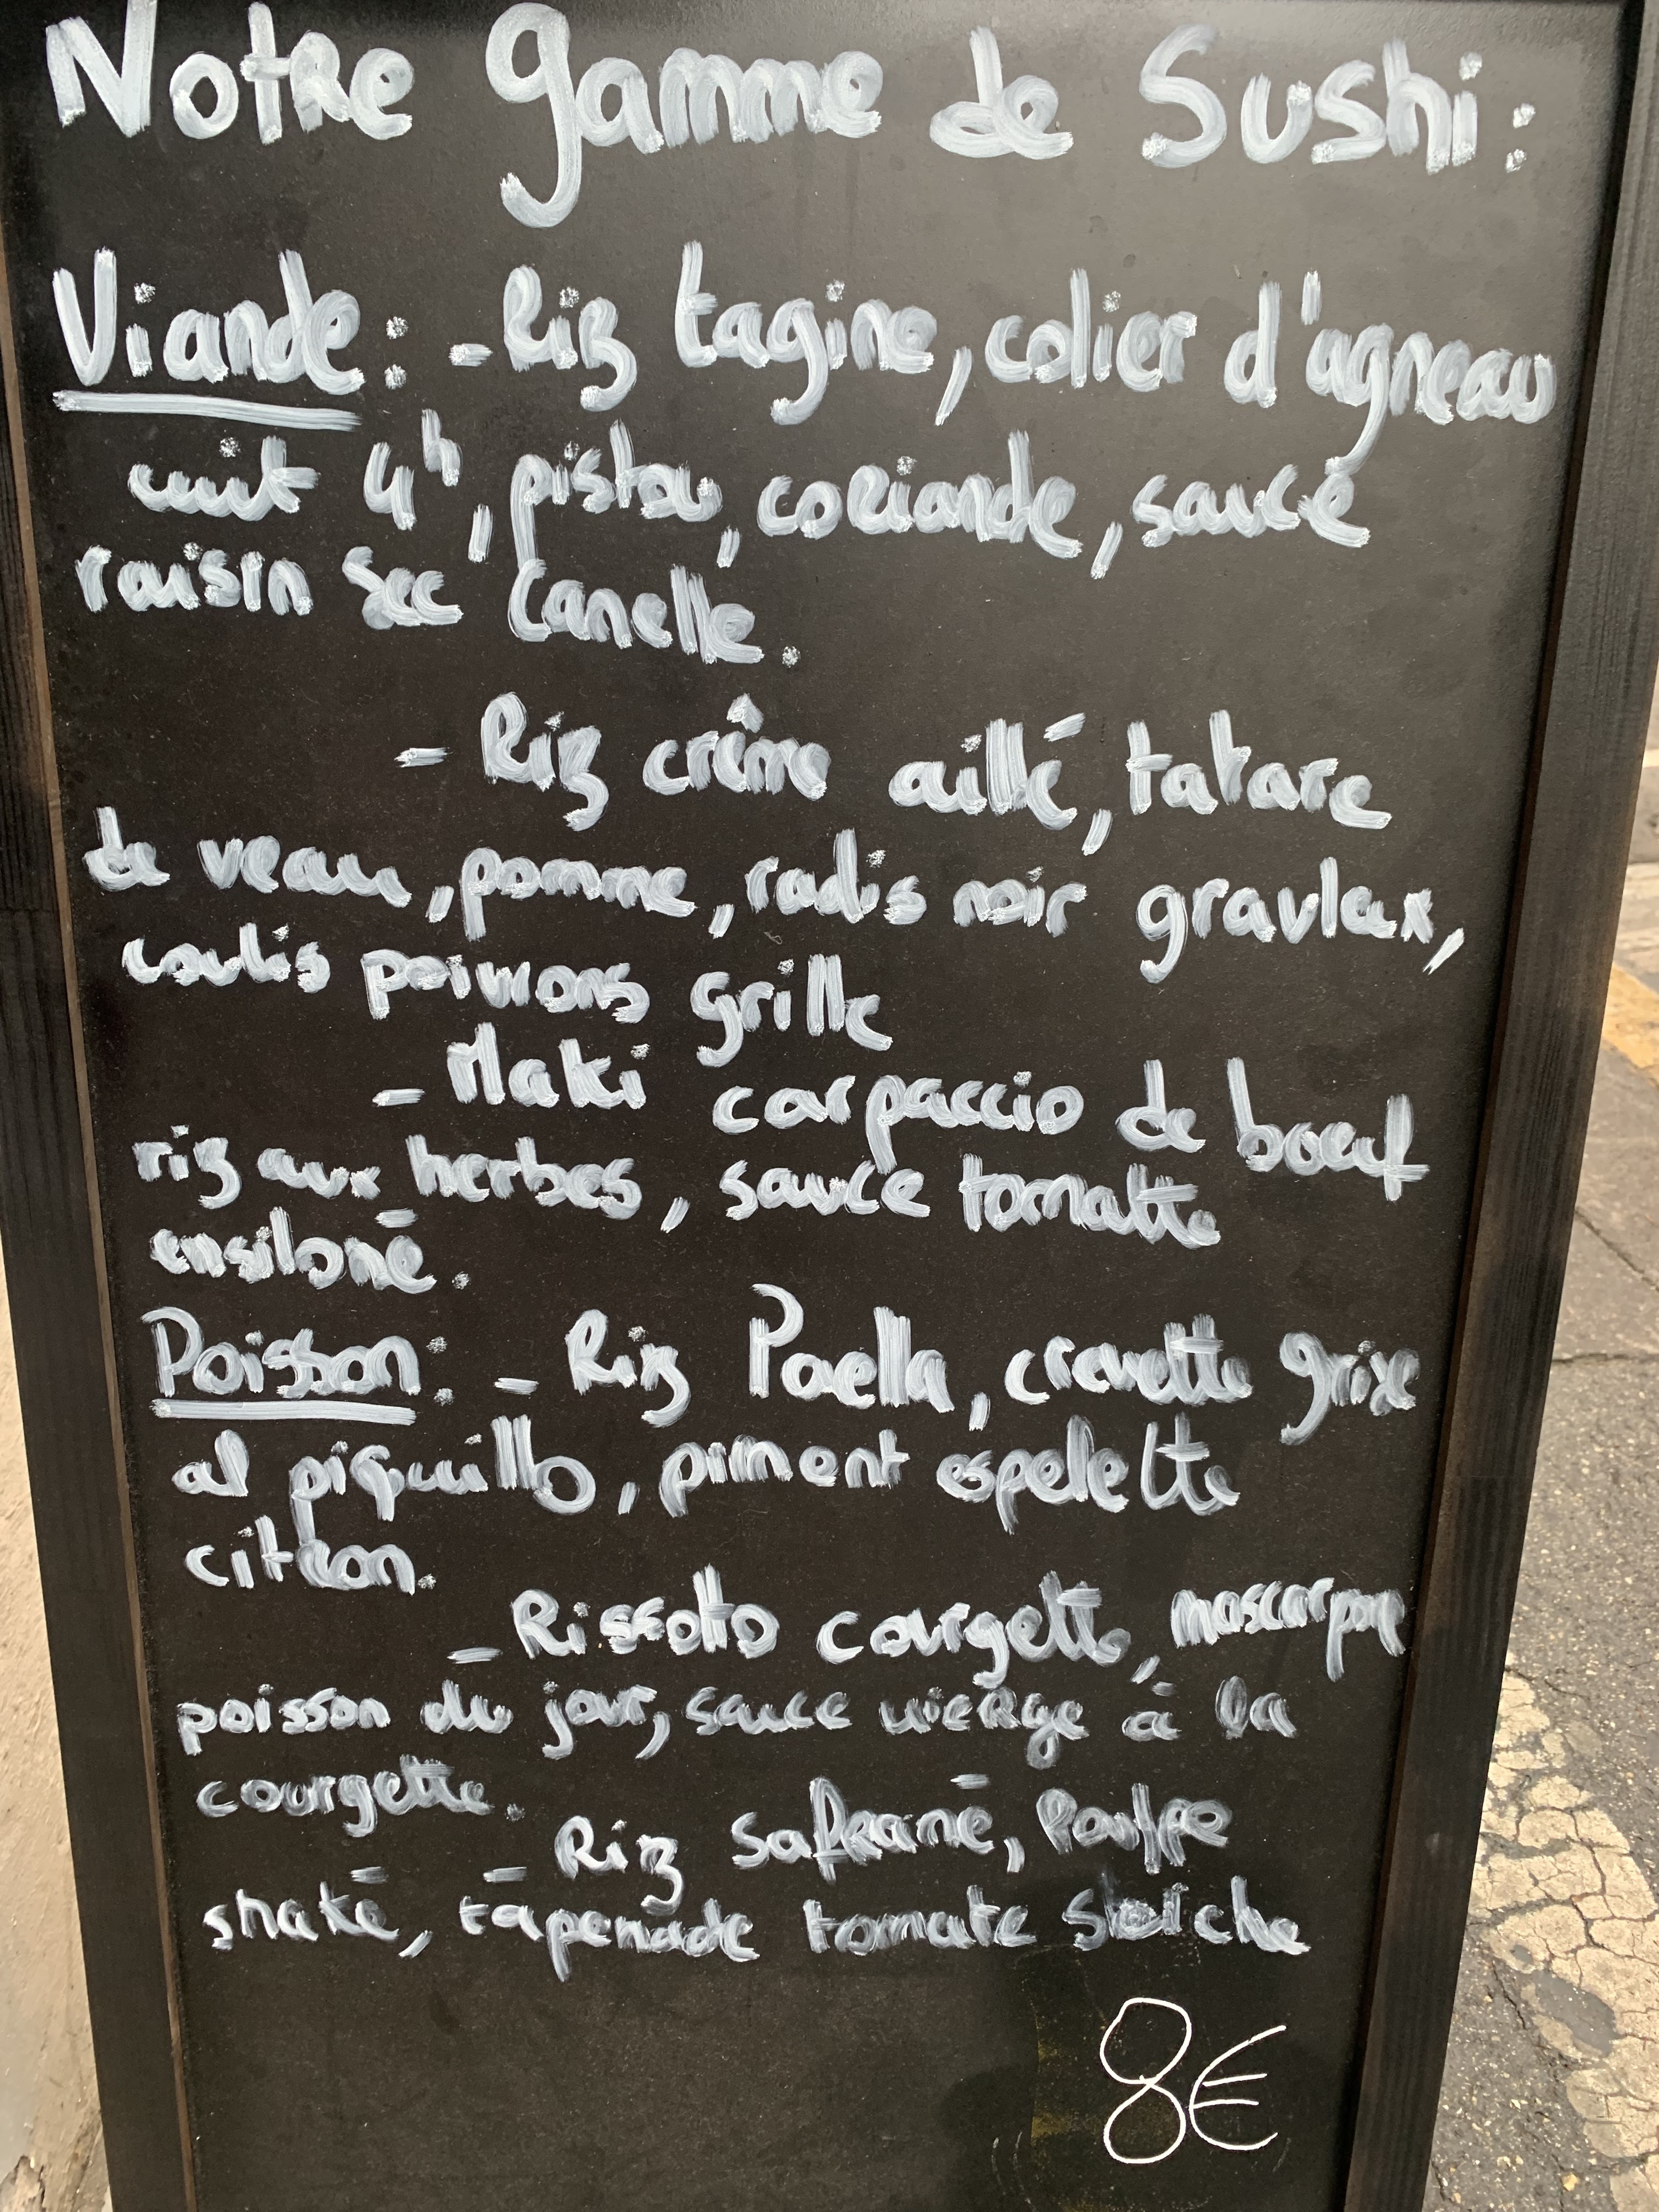 Notre gamme de Sushi :
Viande : - Riz tagine, colier d'agneau
cuit 4h, pistou, coriande, sauce
raisin sec canelle.
- Riz crême aillé, tatare
de veau, pomme, radis noir gravlax,
coulis poivrons grille
- Maki carpaccio de boeuf
riz aux herbes, sauce tomatte
ensiloné.
Poisson : - Riz Paella, crevette grise
al piquillo, piment espelette
citron.
- Rissotto courgette, mascarpone
poisson du jour, sauce vierge à la
courgette.
- Riz Safrané, Poulpe
shaké, tapenade tomate
8€